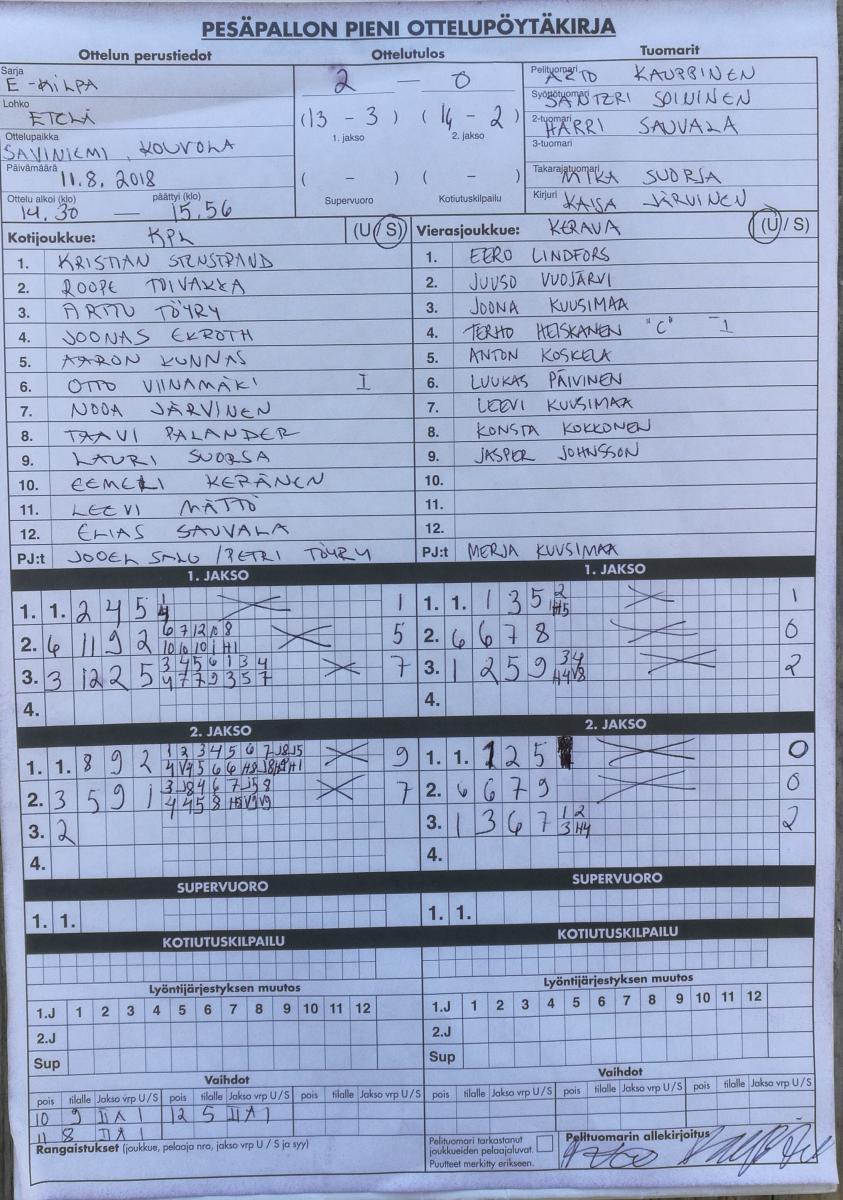 PESÄPALLON PIENI OTTELUPÖYTÄKIRJA
Ottelun perustiedot Ottelutulos Tuomarit
Sarja E-KILPA
Lohko ETELÄ
Ottelupaikka SAVINIEMI, KOUVOLA
Päivämäärä 11.8.2018
Ottelu alkoi (klo) 14.30 — päättyi (klo) 15.56
2 — 0
(13 - 3) (14 - 2)
1. jakso 2. jakso
( - ) ( - )
Supervuoro Kotiutuskilpailu
Pelituomari ARTO KAUPPINEN
Syöttötuomari SANTERI SOININEN
2-tuomari HARRI SAUVALA
3-tuomari
Takarajatuomari MIKA SUORSA
Kirjuri KAISA JÄRVINEN
Kotijoukkue: KPL (U/S)
1. KRISTIAN STENSTRAND
2. ROOPE TOIVAKKA
3. ARTTU TÖYRY
4. JOONAS EKROTH
5. AARON KUNNAS
6. OTTO VIINAMÄKI I
7. NOOA JÄRVINEN
8. TAAVI PALANDER
9. LAURI SUORSA
10. EEMELI KERÄNEN
11. LEEVI MÄTTÖ
12. ELIAS SAUVALA
PJ:t JOOEL SALO / PETRI TÖYRY
Vierasjoukkue: KERAVA (U/S)
1. EERO LINDFORS
2. JUUSO VUOJÄRVI
3. JOONA KUUSIMAA
4. TERHO HEISKANEN "C" I
5. ANTON KOSKELA
6. LUUKAS PÄIVINEN
7. LEEVI KUUSIMAA
8. KONSTA KOKKONEN
9. JASPER JOHNSSON
10.
11.
12.
PJ:t MERJA KUUSIMAA
1. JAKSO
1. 1. 2 4 5 1
2. 6 11 9 2 6 7 12 10 8 5
3. 3 12 2 5 3 4 5 6 1 3 4 7
4 7 7 9 3 5 7
4.
1. JAKSO
1. 1. 1 3 5 2 H5 1
2. 6 6 7 8 0
3. 1 2 5 9 3 4 H4 V8 2
4.
2. JAKSO
1. 1. 8 9 2 1 2 3 4 5 6 7 9
2. 3 5 9 1 7
3. 2
4.
2. JAKSO
1. 1. 1 2 5 0
2. 6 6 7 9 0
3. 1 3 6 7 1 2 3 H4 2
4.
SUPERVUORO SUPERVUORO
1. 1. 1. 1.
KOTIUTUSKILPAILU KOTIUTUSKILPAILU
Lyöntijärjestyksen muutos Lyöntijärjestyksen muutos
1.J 1 2 3 4 5 6 7 8 9 10 11 12 1.J 1 2 3 4 5 6 7 8 9 10 11 12
2.J 2.J
Sup Sup
Vaihdot Vaihdot
pois tilalle Jakso vrp U/S pois tilalle Jakso vrp U/S pois tilalle Jakso vrp U/S pois tilalle Jakso vrp U/S
10 9 II A 1 12 5 II A 1
11 8 II A 1
Rangaistukset (joukkue, pelaaja nro, jakso vrp U / S ja syy)
Pelituomari tarkastanut
joukkueiden pelaajaluvat.
Puutteet merkitty erikseen.
Pelituomarin allekirjoitus